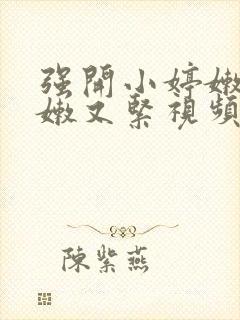 强開小婷嫩
嫩又緊視頻
陳紫燕